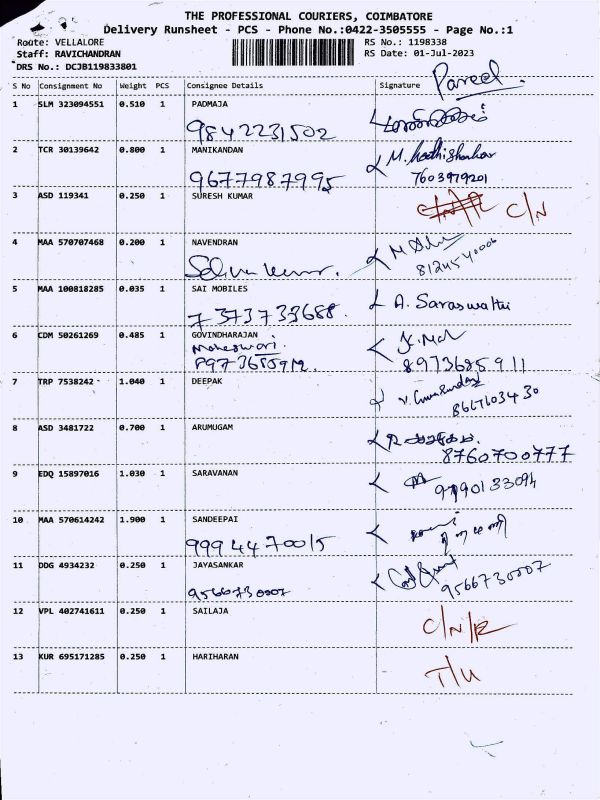 THE PROFESSIONAL COURIERS, COIMBATORE
Delivery Runsheet - PCS - Phone No.:0422-3505555 - Page No.:1
Route: VELLALORE
RS No.: 1198338
Staff: RAVICHANDRAN
RS Date: 01-Jul-2023
DRS No.: DCJB119833801
Parcel
S No Consignment No Weight PCS Consignee Details Signature
1 SLM 323094551 0.510 1 PADMAJA
9842231502
2 TCR 30139642 0.800 1 MANIKANDAN
9677987995
7603979201
3 ASD 119341 0.250 1 SURESH KUMAR
C/N
4 MAA 570707468 0.200 1 NAVENDRAN
8124540006
5 MAA 100818285 0.035 1 SAI MOBILES
7373733688. A. Saraswathi
6 CDM 50261269 0.485 1 GOVINDHARAJAN
Maheswari.
8973685911
7 TRP 7538242 1.040 1 DEEPAK
8667603430
8 ASD 3481722 0.700 1 ARUMUGAM
8760700777
9 EDQ 15897016 1.030 1 SARAVANAN
9790133094
10 MAA 570614242 1.900 1 SANDEEPAI
9994470015
11 DDG 4934232 0.250 1 JAYASANKAR
9566730007 9566730007
12 VPL 402741611 0.250 1 SAILAJA
C/N/R
13 KUR 695171285 0.250 1 HARIHARAN
T/U